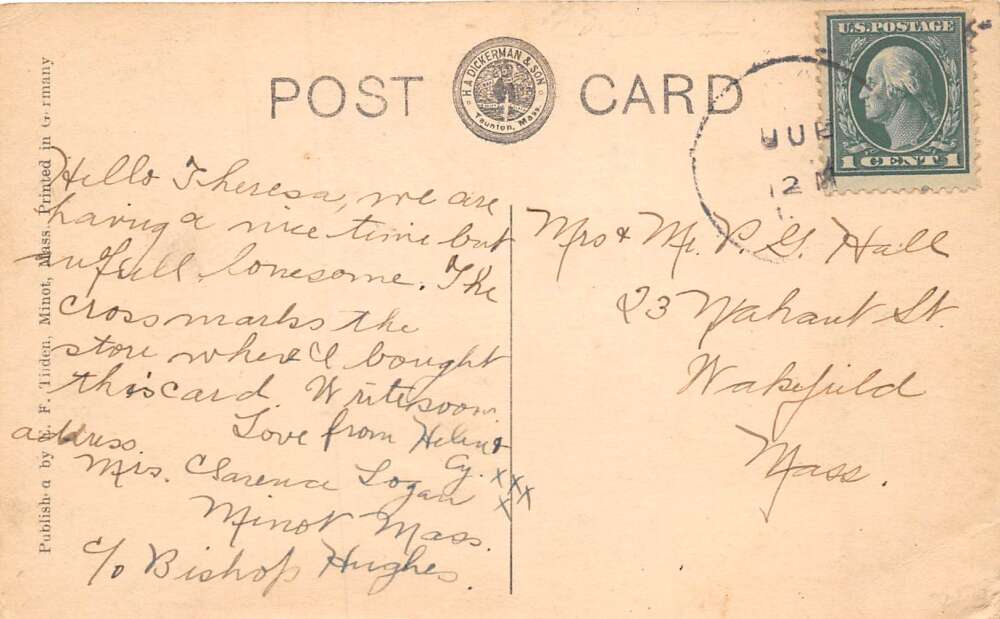 POST CARD
H.A. DICKERMAN & SON
Taunton, Mass.
U.S. POSTAGE
1 CENT 1
12 M
Hello Theresa, we are
having a nice time but
full lonesome. The
cross marks the
store where I bought
this card. Write soon
Love from Helen &
Cy. xxx
x
address
Mrs. Clarence Logan
Minot Mass.
c/o Bishop Hughes.
Mrs & Mr. P. G. Hall
23 Nahant St.
Wakefield
Mass.
Published by E. F. Tilden, Minot, Mass. Printed in Germany